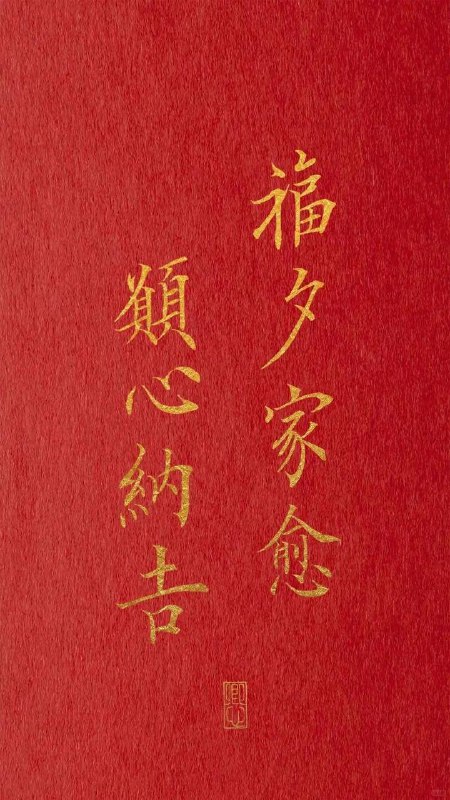 福夕家愈
願心納吉